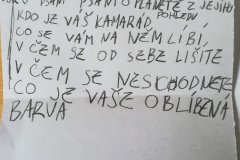 PSANÍ O PLANETĚ Z JEJÍHO
POHLEDU
KDO JE VÁŠ KAMARÁD,
CO SE VÁM NA NĚM LÍBÍ,
V ČEM SE OD SEBE LIŠÍTE
V ČEM SE NESCHODNETE
CO JE VAŠE OBLÍBENÁ
BARVA